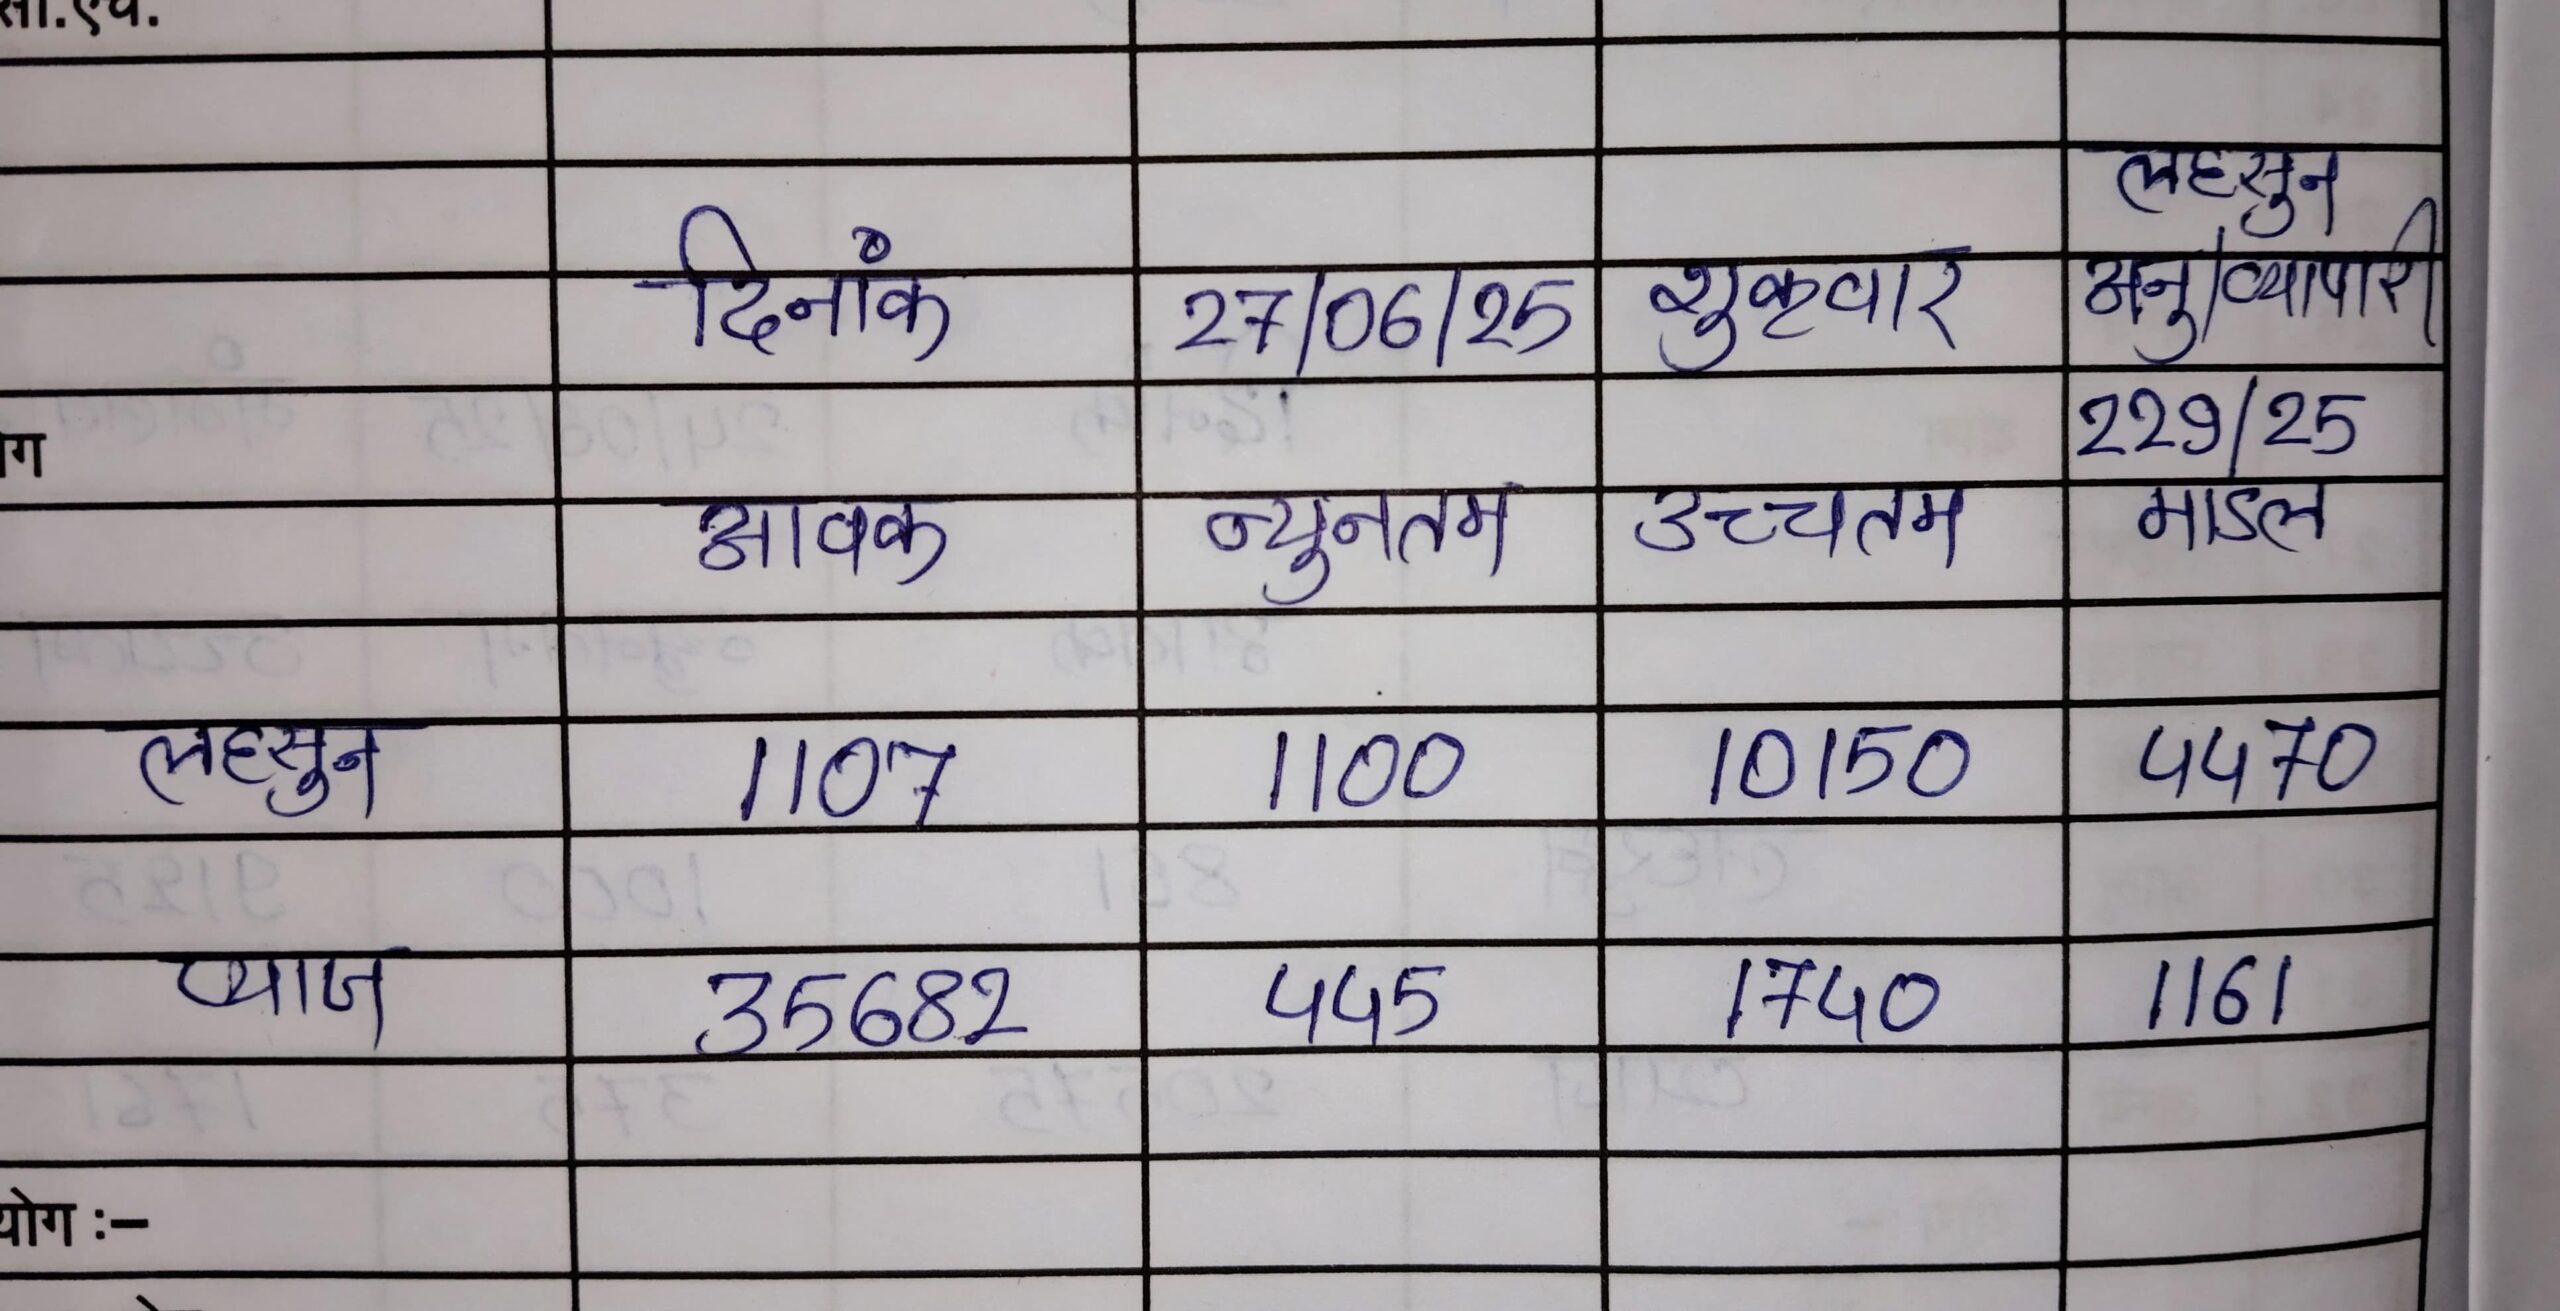 सी.एच.
लहसुन
दिनांक 27/06/25 शुक्रवार अनु/व्यापारी
229/25
आवक न्युनतम उच्चतम माडल
लहसुन 1107 1100 10150 4470
प्याज 35682 445 1740 1161
योग :-